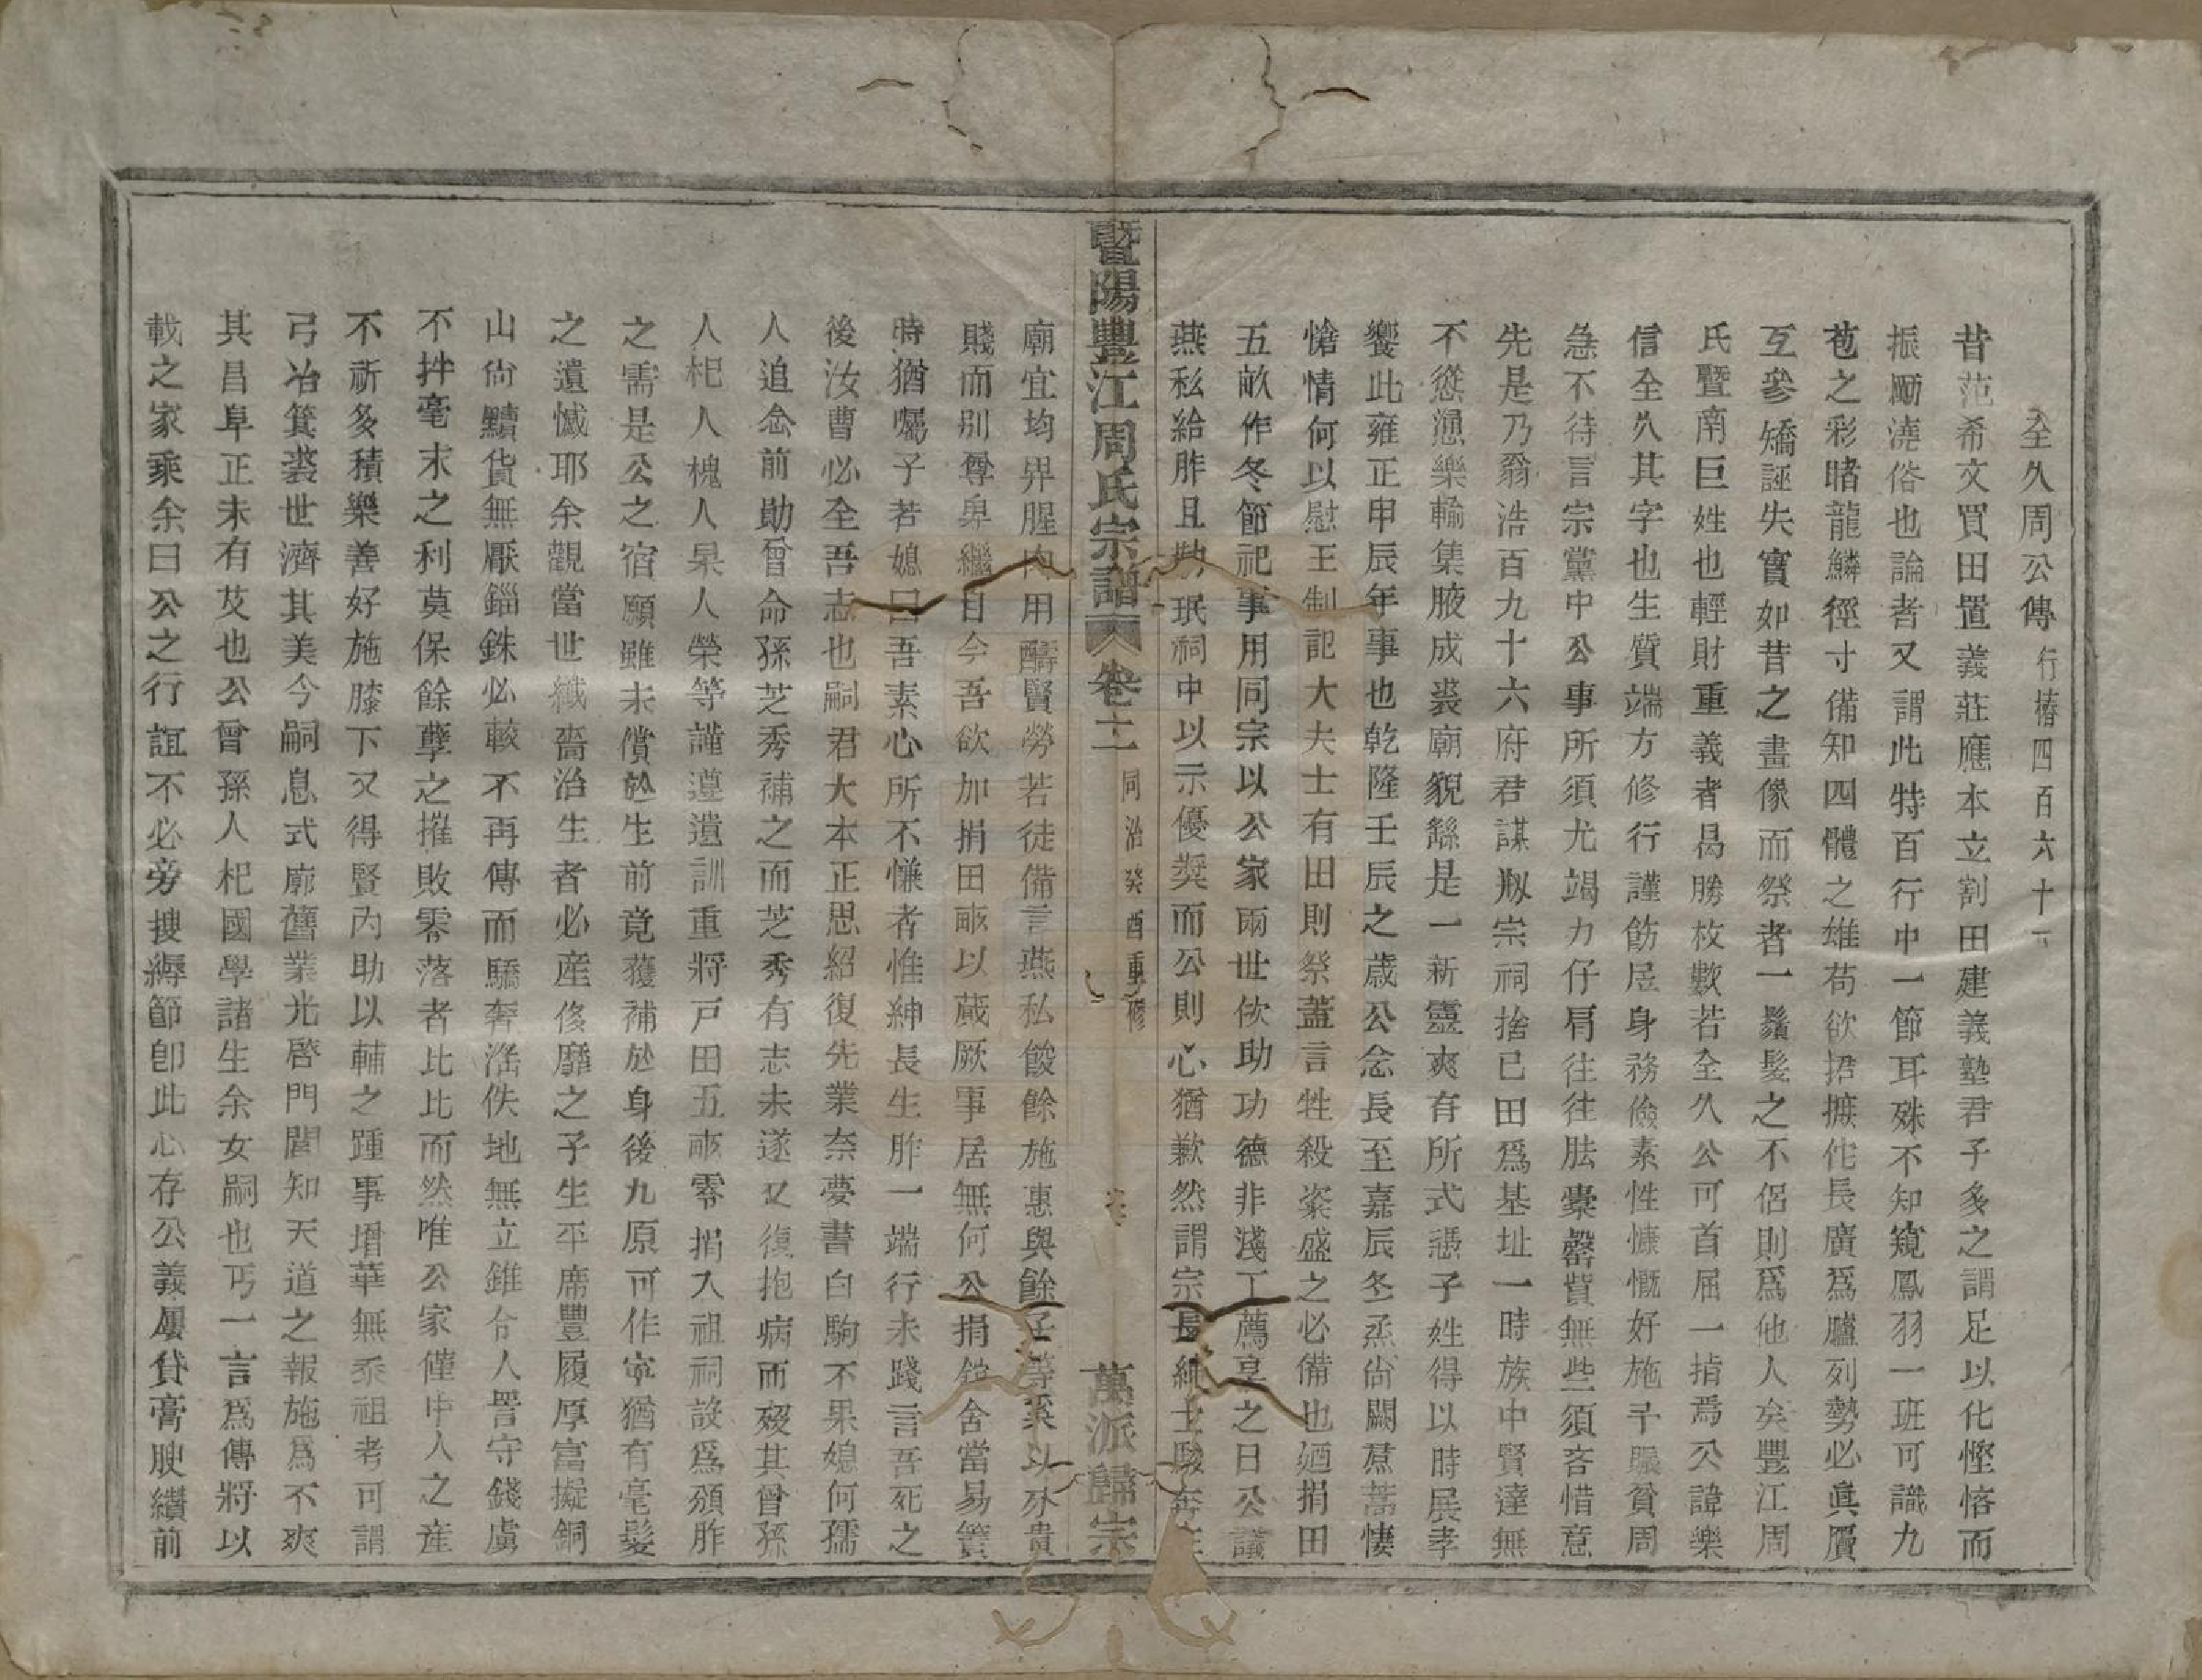 全久周公傳行椿四百六十一
昔范希文買田置義莊應本立割田建義塾君子多之謂足以化慳悋而
振勵澆俗也論者又謂此特百行中一節耳殊不知窺鳳羽一班可識九
苞之彩睹龍鱗徑寸備知四體之雄苟欲捃摭侘長廣爲臚列勢必眞贗
互參矯誣失實如昔之畫像而祭者一鬚髮之不侶則爲他人矣豐江周
氏暨南巨姓也輕財重義者曷勝枚數若全久公可首屈一指焉公諱樂
信全久其字也生質端方修行謹飭居身務儉素性慷慨好施予賑貧周
急不待言宗黨中公事所須尤竭力仔肩往往胠橐罄貲無些須吝惜意
先是乃翁浩百九十六府君謀剏宗祠捨已田爲基址一時族中賢達無
不慫慂樂輸集腋成裘廟貌繇是一新靈爽有所式憑子姓得以時展孝
饗此雍正甲辰年事也乾隆壬辰之歲公念長至嘉辰冬烝尙闕焄蒿悽
愴情何以慰王制記大夫士有田則祭蓋言牲殺粢盛之必備也廼捐田
五畝作冬節祀事用同宗以公家兩世佽助功德非淺工薦享之日公議
燕私給胙且勒珉祠中以示優奬而公則心猶歉然謂宗長紳士駿奔在
暨陽豐江周氏宗譜 卷十二 同治癸酉重修 萬派歸宗
廟宜均畀腥肉用酬賢勞若徒備言燕私餕餘施惠與餘子等奚以別貴
賤而別尊卑繼自今吾欲加捐田畝以蕆厥事居無何公捐舘舍當易簀
時猶囑子若媳曰吾素心所不慊者惟紳長生胙一端行未踐言吾死之
後汝曹必全吾志也嗣君大本正思紹復先業奈夢書白駒不果媳何孺
人追念前勛曾命孫芝秀補之而芝秀有志未遂又復抱病而歿其曾孫
人杞人槐人杲人榮等謹遵遺訓重將戸田五畝零捐入祖祠設爲頒胙
之需是公之宿願雖未償於生前竟獲補於身後九原可作寜猶有毫髮
之遺憾耶余觀當世纎嗇治生者必産侈靡之子生平席豐履厚富擬銅
山尙黷貨無厭錙銖必較不再傳而驕奢滛佚地無立錐合人詈守錢虜
不㧈毫末之利莫保餘孽之摧敗零落者比比而然唯公家僅中人之産
不祈多積樂善好施膝下又得賢內助以輔之踵事增華無忝祖考可謂
弓冶箕裘世濟其美今嗣息式廓舊業光啓門閭知天道之報施爲不爽
其昌阜正未有艾也公曾孫人杞國學諸生余女嗣也丐一言爲傳將以
載之家乘余曰公之行誼不必旁搜縟節卽此心存公義屢貸膏腴纉前